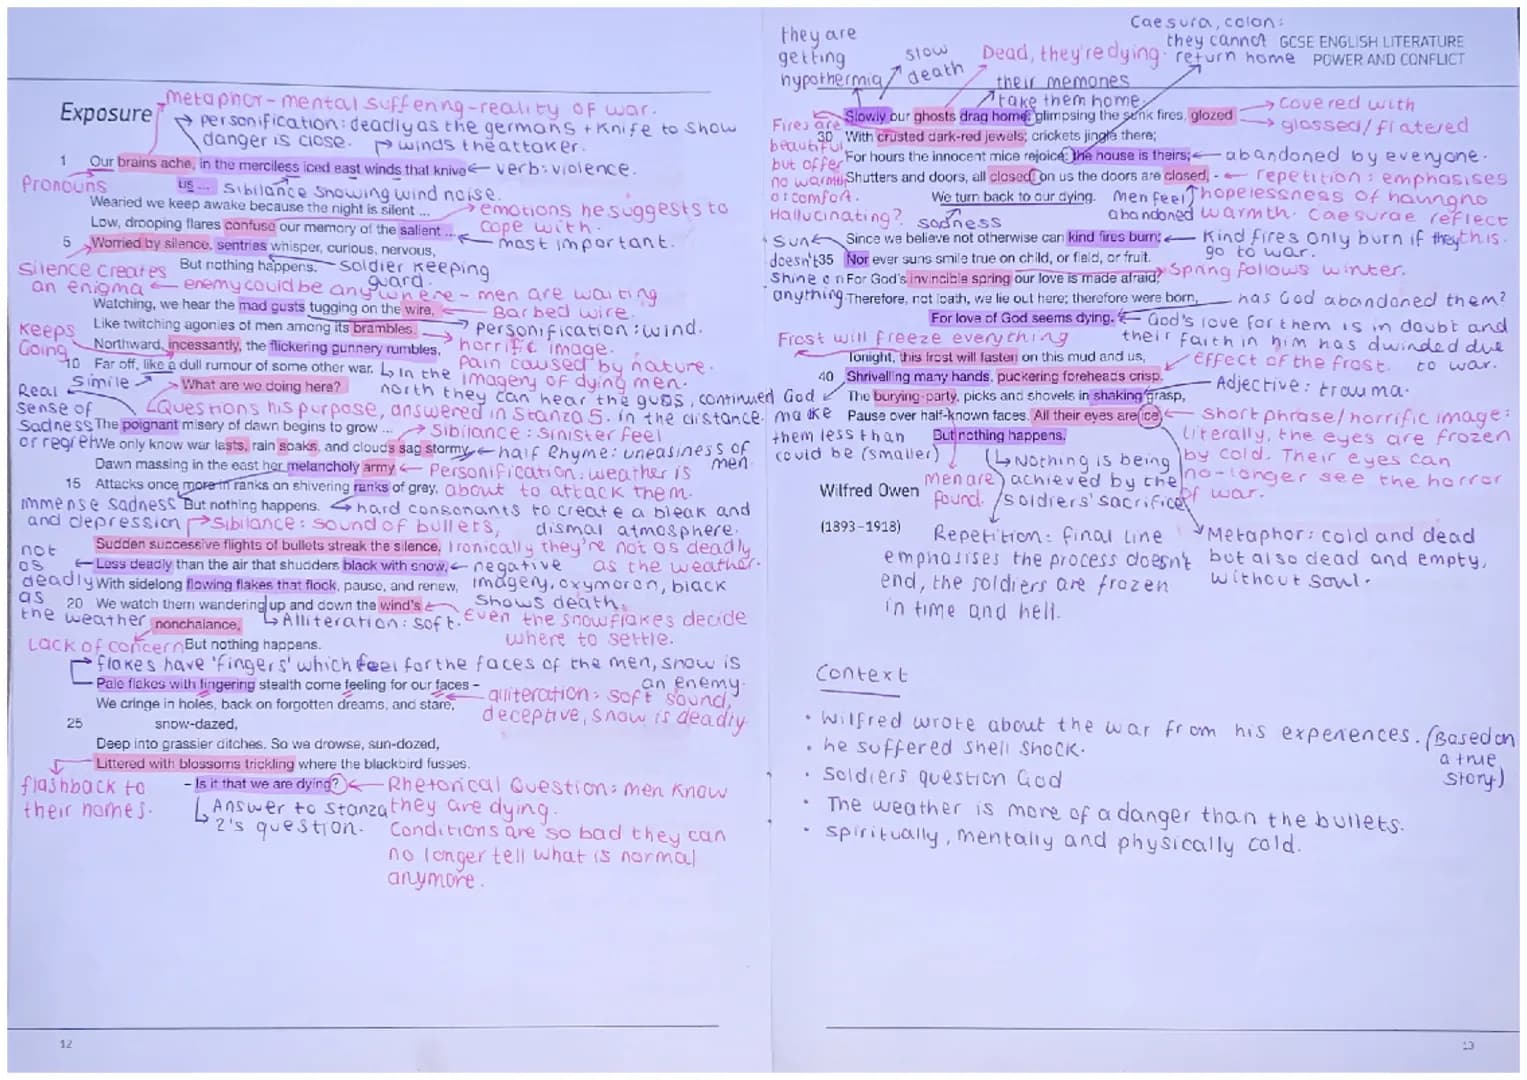 Exposure
metaphor - mental suffering - reality of war.
personification: deadly as the germans + knife to show
danger is close.
winds the attaker.
1 Our brains ache, in the merciless iced east winds that knive
verb: violence.
Pronouns
us ...
Sibilance showing wind noise.
Wearied we keep awake because the night is silent ...
emotions he suggests to
cope with.
Low, drooping flares confuse our memory of the salient ...
most important.
5 Worried by silence, sentries whisper, curious, nervous,
But nothing happens.
Soldier keeping
guard.
Silence creates
an enigma
enemy could be anywhere - men are waiting
Watching, we hear the mad gusts tugging on the wire,
Barbed wire.
Like twitching agonies of men among its brambles.
Personification: wind.
Keeps
Going
horrific image.
Northward, incessantly, the flickering gunnery rumbles,
Pain caused by nature.
10 Far off, like a dull rumour of some other war.
In the
north they can hear the guns, continued
in the distance.
Imagery of dying men.
Simile
What are we doing here?
Questions his purpose, answered in Stanza 5.
Real
sense of
sadness
or regret
The poignant misery of dawn begins to grow ...
Sibilance: sinister feel
We only know war lasts, rain soaks, and clouds sag stormy.
half Rhyme: uneasiness of
men.
Dawn massing in the east her melancholy army
Personification. weather is
about to attack them.
15 Attacks once more in ranks on shivering ranks of grey,
immense sadness
and depression
But nothing happens.
hard consonants to create a bleak and
dismal atmosphere.
Sibilance: sound of bullets,
Sudden successive flights of bullets streak the silence.
Ironically they're not as deadly
as the weather.
not
as
deadly
as
the weather
Less deadly than the air that shudders black with snow,
negative
imagery, oxymoron, black
shows death.
With sidelong flowing flakes that flock, pause, and renew,
20 We watch them wandering up and down the wind's
Alliteration: soft.
Even the snowflakes decide
where to settle.
nonchalance,
Lack of concern
But nothing happens.
flakes have 'fingers' which feel for the faces of the men, snow is
an enemy.
Pale flakes with fingering stealth come feeling for our faces -
alliteration: soft sound,
deceptive, snow is deadly
We cringe in holes, back on forgotten dreams, and stare,
25 snow-dazed,
Deep into grassier ditches. So we drowse, sun-dozed,
Littered with blossoms trickling where the blackbird fusses.
flashback to
their homes.
- Is it that we are dying?
Answer to stanza
2's question.
Rhetorical Question: men know
they are dying.
Conditions are so bad they can
no longer tell what is normal
anymore.
12
they are
getting
hypothermia
slow
death
Dead, they're dying.
their memories
take them home.
Caesura, colon:
they cannot
return home
GCSE ENGLISH LITERATURE
POWER AND CONFLICT
Slowly our ghosts drag home: glimpsing the sunk fires, glozed
Covered with
glossed/flatered
Fires are
beautiful
but offer
no warmth
or comfort.
Hallucinating?
30 With crusted dark-red jewels; crickets jingle there;
For hours the innocent mice rejoice: the house is theirs;
abandoned by everyone.
Shutters and doors, all closed: on us the doors are closed, -
repetition: emphasises
hopelessness of having no
warmth. Caesurae reflect
this.
We turn back to our dying.
sadness
men feel
abandoned
Since we believe not otherwise can kind fires burn;
Kind fires only burn if they
go to war.
Sun
doesn't
shine on
anything
35 Nor ever suns smile true on child, or field, or fruit.
For God's invincible spring our love is made afraid;
Spring follows winter.
Therefore, not loath, we lie out here; therefore were born,
has God abandoned them?
For love of God seems dying.
God's love for them is in doubt and
their faith in him has dwindled due
to war.
Frost will freeze everything
Tonight, this frost will fasten on this mud and us,
effect of the frost.
40 Shrivelling many hands, puckering foreheads crisp.
God
make
them less than
could be (smaller)
The burying-party, picks and shovels in shaking grasp,
Adjective: trauma.
Pause over half-known faces. All their eyes are ice,
short phrase/horrific image:
literally, the eyes are frozen
by cold. Their eyes can
no-longer see the horror
of war.
But nothing happens.
Nothing is being
achieved by the
soldiers' sacrifice
men are
found.
Wilfred Owen
(1893–1918)
Repetition: final line
emphasises the process doesn't
end, the soldiers are frozen
in time and hell.
Metaphor: cold and dead
but also dead and empty,
without soul.
Context
• Wilfred wrote about the war from his experiences. (Based on
a true
story)
• he suffered shell shock.
• Soldiers question God
• The weather is more of a danger than the bullets.
• spiritually, mentally and physically cold.
13